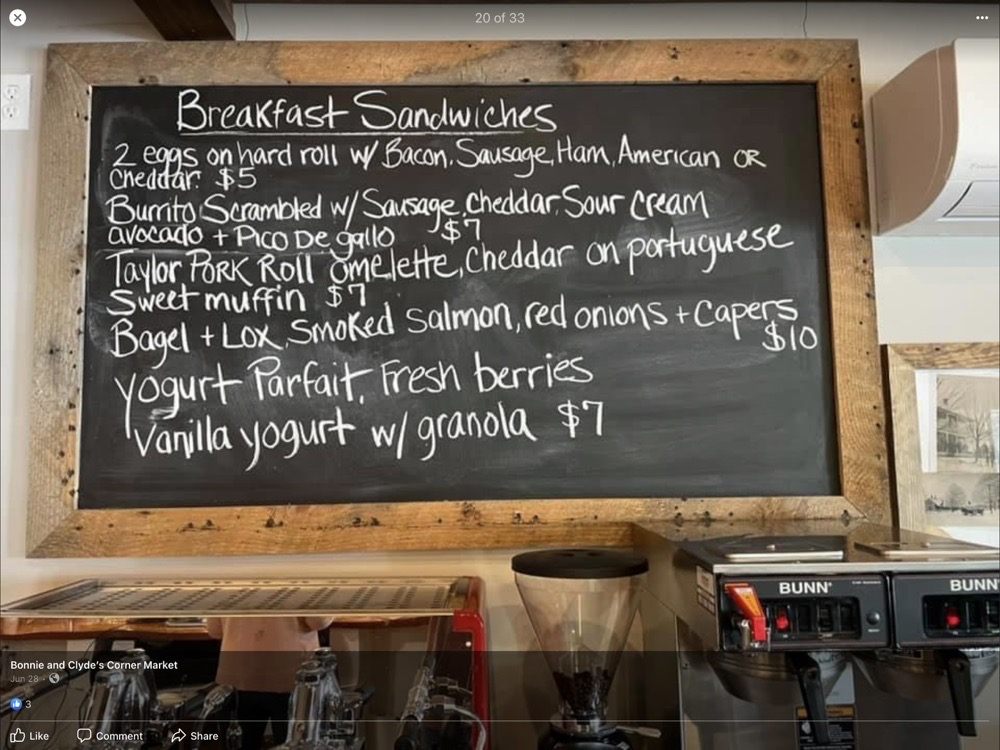 20 of 33
Breakfast Sandwiches
2 eggs on hard roll w/ Bacon, Sausage, Ham, American OR
Cheddar. $5
Burrito Scrambled w/ Sausage, Cheddar, Sour Cream
avocado + Pico De gallo $7
Taylor Pork Roll omelette, Cheddar on portuguese
Sweet muffin $7
Bagel + Lox, Smoked Salmon, red onions + Capers
$10
Yogurt Parfait, Fresh berries
Vanilla yogurt w/ granola $7
BUNN
BUNN
Bonnie and Clyde's Corner Market
Jun 28
3
Like Comment Share